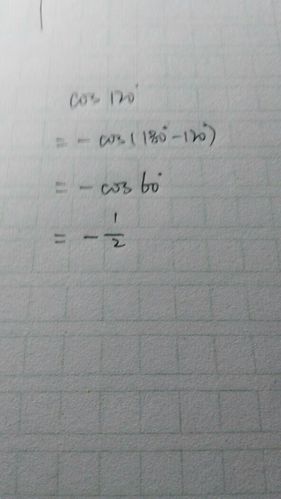 cos 120°
= - cos(180° - 120°)
= - cos 60°
= - 1/2